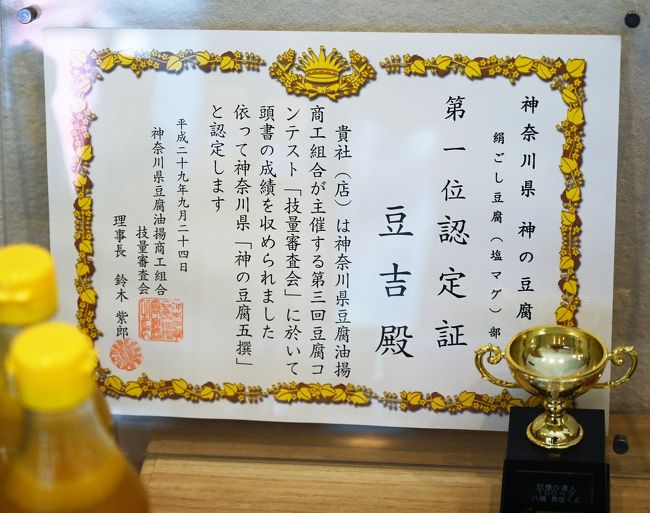 神奈川県 神の豆腐
絹ごし豆腐(塩マグ)部
第一位認定証
豆吉殿
貴社(店)は神奈川県豆腐油揚
商工組合が主催する第三回豆腐コ
ンテスト「技量審査会」に於いて
頭書の成績を収められました
依って神奈川県「神の豆腐五撰」
と認定します
平成二十九年九月二十四日
神奈川県豆腐油揚商工組合
技量審査会
理事長 鈴木 紫郎